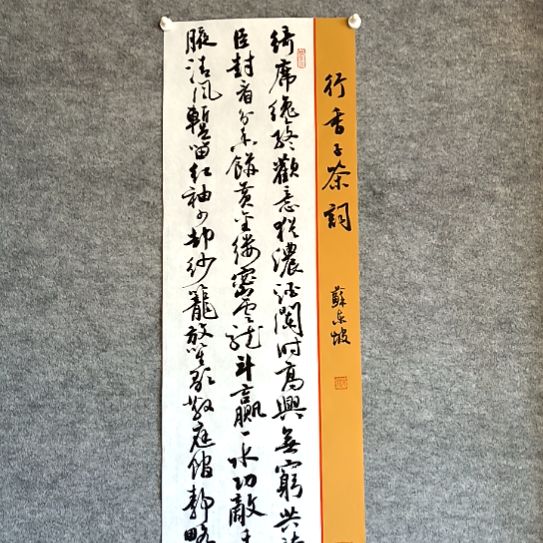 行香子茶詞
蘇東坡
綺席纔終歡意猶濃酒闌时高興無窮共
臣封看分香餅黃金縷密雲龍斗贏一水功敵
腋清風暫留紅袖少却紗籠放笙歌散庭館靜略